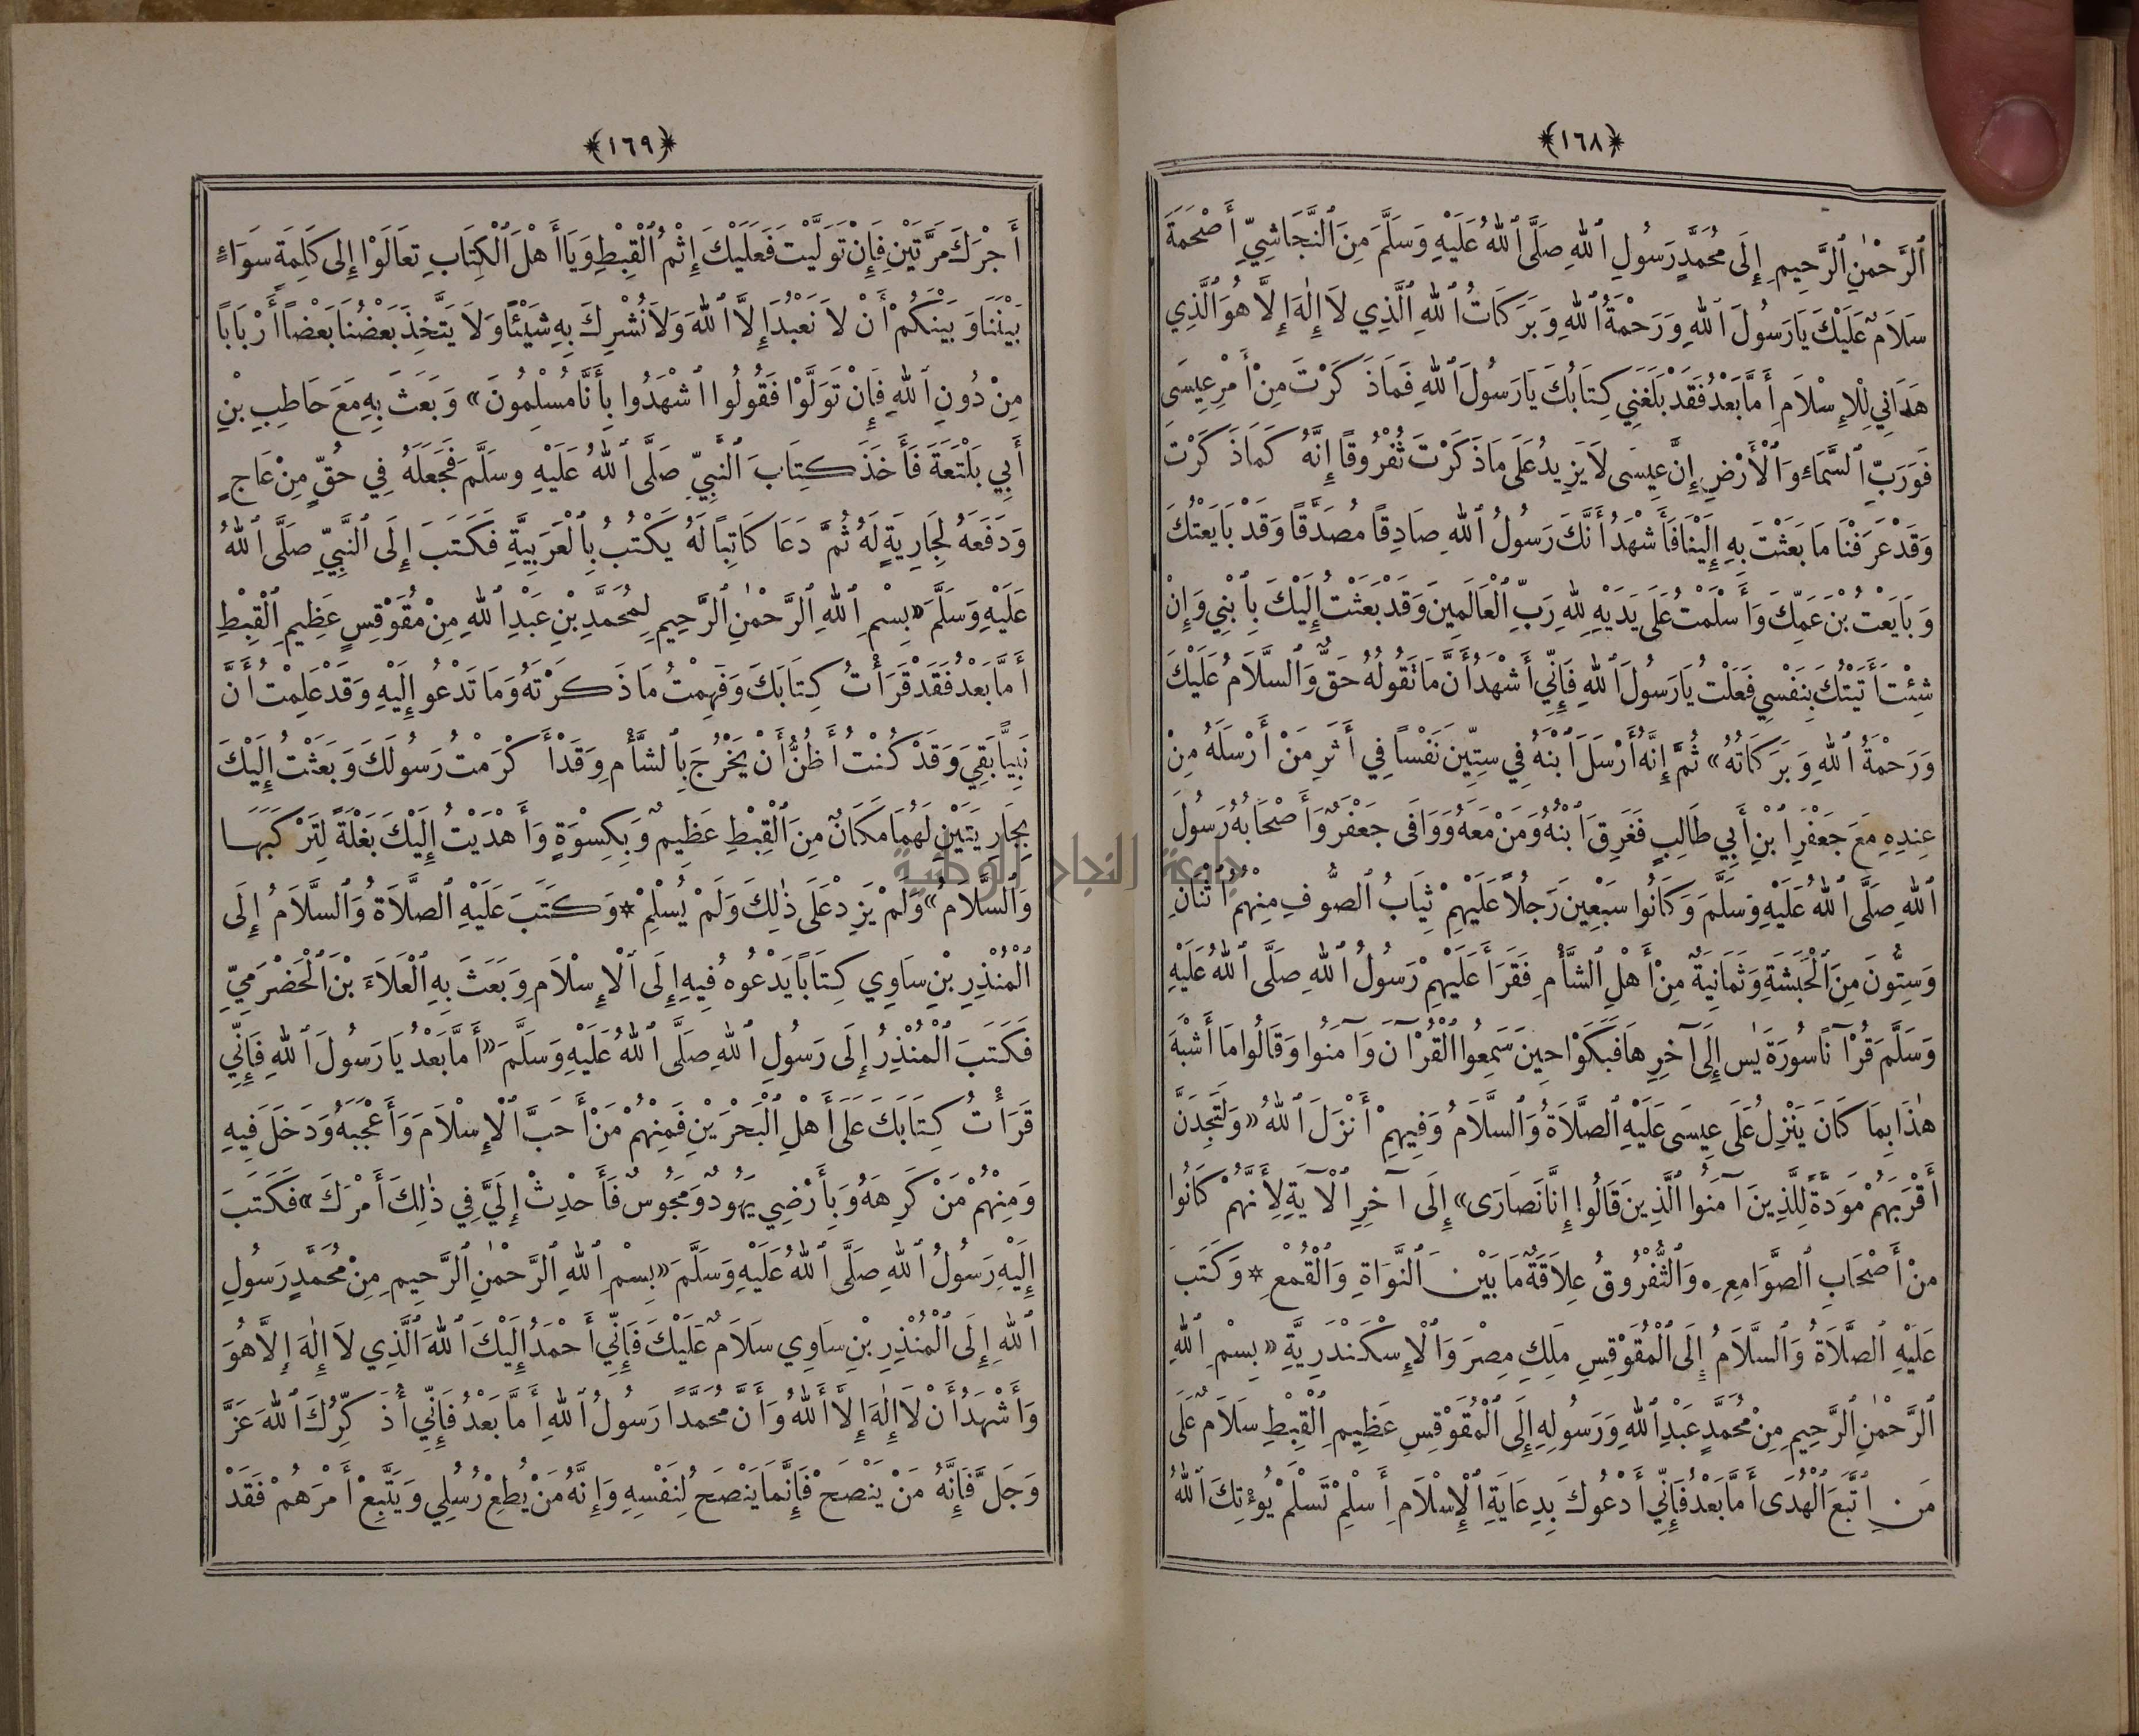 ﴿١٦٨﴾
ٱلرَّحْمٰنِ ٱلرَّحِيمِ إِلَى مُحَمَّدٍ رَسُولِ ٱللهِ صَلَّى ٱللهُ عَلَيْهِ وَسَلَّمَ مِنَ ٱلنَّجَاشِيِّ أَصْحَمَةَ
سَلَامٌ عَلَيْكَ يَا رَسُولَ ٱللهِ وَرَحْمَةُ ٱللهِ وَبَرَكَاتُ ٱللهِ ٱلَّذِي لَا إِلٰهَ إِلَّا هُوَ ٱلَّذِي
هَدَانِي لِلْإِسْلَامِ أَمَّا بَعْدُ فَقَدْ بَلَغَنِي كِتَابُكَ يَا رَسُولَ ٱللهِ فَمَا ذَكَرْتَ مِنْ أَمْرِ عِيسَى
فَوَرَبِّ ٱلسَّمَاءِ وَٱلْأَرْضِ إِنَّ عِيسَى لَا يَزِيدُ عَلَى مَا ذَكَرْتَ ثُفْرُوقًا إِنَّهُ كَمَا ذَكَرْتَ
وَقَدْ عَرَفْنَا مَا بَعَثْتَ بِهِ إِلَيْنَا فَأَشْهَدُ أَنَّكَ رَسُولُ ٱللهِ صَادِقًا مُصَدَّقًا وَقَدْ بَايَعْتُكَ
وَبَايَعْتُ بْنَ عَمِّكَ وَأَسْلَمْتُ عَلَى يَدَيْهِ لِلهِ رَبِّ ٱلْعَالَمِينَ وَقَدْ بَعَثْتُ إِلَيْكَ بِٱبْنِي وَإِنْ
شِئْتَ أَتَيْتُكَ بِنَفْسِي فَعَلْتُ يَا رَسُولَ ٱللهِ فَإِنِّي أَشْهَدُ أَنَّ مَا تَقُولُهُ حَقٌّ وَٱلسَّلَامُ عَلَيْكَ
وَرَحْمَةُ ٱللهِ وَبَرَكَاتُهُ» ثُمَّ إِنَّهُ أَرْسَلَ ٱبْنَهُ فِي سِتِّينَ نَفْسًا فِي أَثَرِ مَنْ أَرْسَلَهُ مِنْ
عِنْدِهِ مَعَ جَعْفَرِ ٱبْنِ أَبِي طَالِبٍ فَغَرِقَ ٱبْنُهُ وَمَنْ مَعَهُ وَوَافَى جَعْفَرٌ وَأَصْحَابُهُ رَسُولَ
ٱللهِ صَلَّى ٱللهُ عَلَيْهِ وَسَلَّمَ وَكَانُوا سَبْعِينَ رَجُلًا عَلَيْهِمْ ثِيَابُ ٱلصُّوفِ مِنْهُمُ ٱثْنَانِ
وَسِتُّونَ مِنَ ٱلْحَبَشَةِ وَثَمَانِيَةٌ مِنْ أَهْلِ ٱلشَّأْمِ فَقَرَأَ عَلَيْهِمْ رَسُولُ ٱللهِ صَلَّى ٱللهُ عَلَيْهِ
وَسَلَّمَ قُرْآنًا سُورَةَ يٰس إِلَى آخِرِهَا فَبَكَوْا حِينَ سَمِعُوا ٱلْقُرْآنَ وَآمَنُوا وَقَالُوا مَا أَشْبَهَ
هٰذَا بِمَا كَانَ يَنْزِلُ عَلَى عِيسَى عَلَيْهِ ٱلصَّلَاةُ وَٱلسَّلَامُ وَفِيهِمْ أَنْزَلَ ٱللهُ «وَلَتَجِدَنَّ
أَقْرَبَهُمْ مَوَدَّةً لِلَّذِينَ آمَنُوا ٱلَّذِينَ قَالُوا إِنَّا نَصَارَى» إِلَى آخِرِ ٱلْآيَةِ لِأَنَّهُمْ كَانُوا
مِنْ أَصْحَابِ ٱلصَّوَامِعِ ۞ وَٱلثُّفْرُوقُ عِلَاقَةٌ مَا بَيْنَ ٱلنَّوَاةِ وَٱلْقُمْعِ * وَكَتَبَ
عَلَيْهِ ٱلصَّلَاةُ وَٱلسَّلَامُ إِلَى ٱلْمُقَوْقِسِ مَلِكِ مِصْرَ وَٱلْإِسْكَنْدَرِيَّةِ «بِسْمِ ٱللهِ
ٱلرَّحْمٰنِ ٱلرَّحِيمِ مِنْ مُحَمَّدٍ عَبْدِ ٱللهِ وَرَسُولِهِ إِلَى ٱلْمُقَوْقِسِ عَظِيمِ ٱلْقِبْطِ سَلَامٌ عَلَى
مَنِ ٱتَّبَعَ ٱلْهُدَى أَمَّا بَعْدُ فَإِنِّي أَدْعُوكَ بِدِعَايَةِ ٱلْإِسْلَامِ أَسْلِمْ تَسْلَمْ يُؤْتِكَ ٱللهُ
﴿١٦٩﴾
أَجْرَكَ مَرَّتَيْنِ فَإِنْ تَوَلَّيْتَ فَعَلَيْكَ إِثْمُ ٱلْقِبْطِ وَيَا أَهْلَ ٱلْكِتَابِ تَعَالَوْا إِلَى كَلِمَةٍ سَوَاءٍ
بَيْنَنَا وَبَيْنَكُمْ أَنْ لَا نَعْبُدَ إِلَّا ٱللهَ وَلَا نُشْرِكَ بِهِ شَيْئًا وَلَا يَتَّخِذَ بَعْضُنَا بَعْضًا أَرْبَابًا
مِنْ دُونِ ٱللهِ فَإِنْ تَوَلَّوْا فَقُولُوا ٱشْهَدُوا بِأَنَّا مُسْلِمُونَ» وَبَعَثَ بِهِ مَعَ حَاطِبِ بْنِ
أَبِي بَلْتَعَةَ فَأَخَذَ كِتَابَ ٱلنَّبِيِّ صَلَّى ٱللهُ عَلَيْهِ وَسَلَّمَ فَجَعَلَهُ فِي حُقٍّ مِنْ عَاجٍ
وَدَفَعَهُ لِجَارِيَةٍ لَهُ ثُمَّ دَعَا كَاتِبًا لَهُ يَكْتُبُ بِٱلْعَرَبِيَّةِ فَكَتَبَ إِلَى ٱلنَّبِيِّ صَلَّى ٱللهُ
عَلَيْهِ وَسَلَّمَ «بِسْمِ ٱللهِ ٱلرَّحْمٰنِ ٱلرَّحِيمِ لِمُحَمَّدِ بْنِ عَبْدِ ٱللهِ مِنْ مُقَوْقِسٍ عَظِيمِ ٱلْقِبْطِ
أَمَّا بَعْدُ فَقَدْ قَرَأْتُ كِتَابَكَ وَفَهِمْتُ مَا ذَكَرْتَهُ وَمَا تَدْعُو إِلَيْهِ وَقَدْ عَلِمْتُ أَنَّ
نَبِيًّا بَقِيَ وَقَدْ كُنْتُ أَظُنُّ أَنْ يَخْرُجَ بِٱلشَّأْمِ وَقَدْ أَكْرَمْتُ رَسُولَكَ وَبَعَثْتُ إِلَيْكَ
بِجَارِيَتَيْنِ لَهُمَا مَكَانٌ مِنَ ٱلْقِبْطِ عَظِيمٌ وَبِكِسْوَةٍ وَأَهْدَيْتُ إِلَيْكَ بَغْلَةً لِتَرْكَبَهَا
وَٱلسَّلَامُ» وَلَمْ يَزِدْ عَلَى ذٰلِكَ وَلَمْ يُسْلِمْ * وَكَتَبَ عَلَيْهِ ٱلصَّلَاةُ وَٱلسَّلَامُ إِلَى
ٱلْمُنْذِرِ بْنِ سَاوِي كِتَابًا يَدْعُوهُ فِيهِ إِلَى ٱلْإِسْلَامِ وَبَعَثَ بِهِ ٱلْعَلَاءَ بْنَ ٱلْحَضْرَمِيِّ
فَكَتَبَ ٱلْمُنْذِرُ إِلَى رَسُولِ ٱللهِ صَلَّى ٱللهُ عَلَيْهِ وَسَلَّمَ «أَمَّا بَعْدُ يَا رَسُولَ ٱللهِ فَإِنِّي
قَرَأْتُ كِتَابَكَ عَلَى أَهْلِ ٱلْبَحْرَيْنِ فَمِنْهُمْ مَنْ أَحَبَّ ٱلْإِسْلَامَ وَأَعْجَبَهُ وَدَخَلَ فِيهِ
وَمِنْهُمْ مَنْ كَرِهَهُ وَبِأَرْضِي يَهُودٌ وَمَجُوسٌ فَأَحْدِثْ إِلَيَّ فِي ذٰلِكَ أَمْرَكَ» فَكَتَبَ
إِلَيْهِ رَسُولُ ٱللهِ صَلَّى ٱللهُ عَلَيْهِ وَسَلَّمَ «بِسْمِ ٱللهِ ٱلرَّحْمٰنِ ٱلرَّحِيمِ مِنْ مُحَمَّدٍ رَسُولِ
ٱللهِ إِلَى ٱلْمُنْذِرِ بْنِ سَاوِي سَلَامٌ عَلَيْكَ فَإِنِّي أَحْمَدُ إِلَيْكَ ٱللهَ ٱلَّذِي لَا إِلٰهَ إِلَّا هُوَ
وَأَشْهَدُ أَنْ لَا إِلٰهَ إِلَّا ٱللهُ وَأَنَّ مُحَمَّدًا رَسُولُ ٱللهِ أَمَّا بَعْدُ فَإِنِّي أُذَكِّرُكَ ٱللهَ عَزَّ
وَجَلَّ فَإِنَّهُ مَنْ يَنْصَحْ فَإِنَّمَا يَنْصَحُ لِنَفْسِهِ وَإِنَّهُ مَنْ يُطِعْ رُسُلِي وَيَتَّبِعْ أَمْرَهُمْ فَقَدْ
جامعة النجاح الوطنية